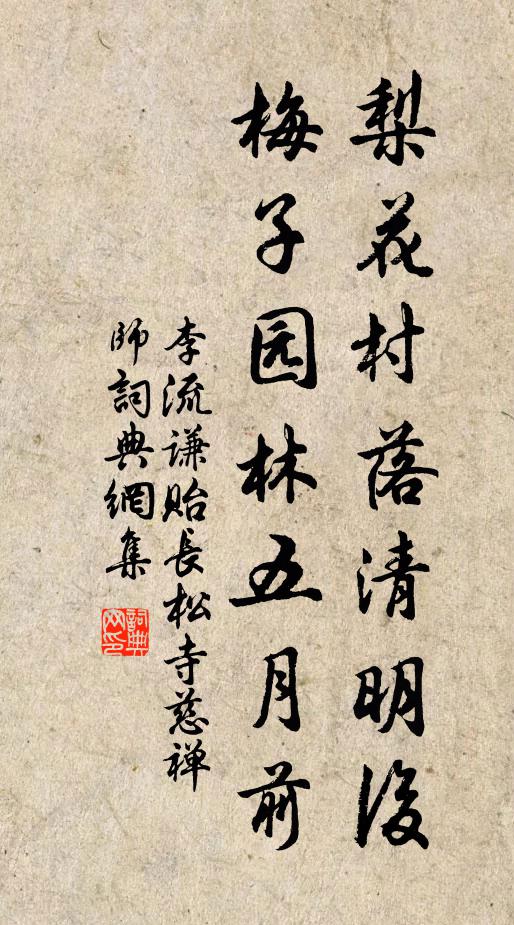 梨花村落清明後
梅子园林五月前
李流謙貽長松寺慈禅
師詞典網集
詞典
网印